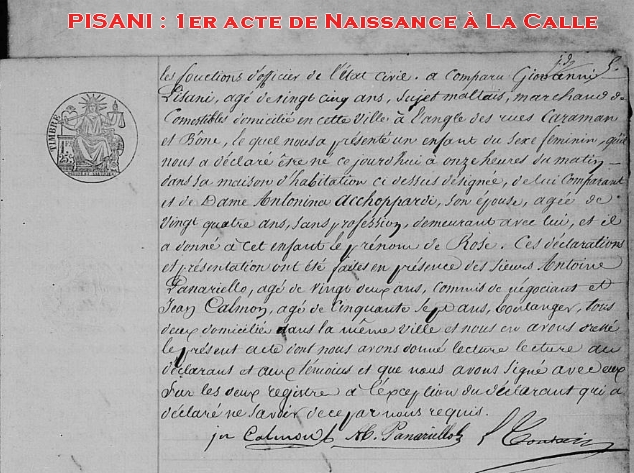 PISANI : 1ER ACTE DE NAISSANCE À LA CALLE
les fonctions d'officier de l'état civil. a Comparu Giovanni
Pisani, agé de vingt cinq ans, sujet maltais, marchand de
Comestibles domicilié en cette ville à l'angle des rues Caraman
et Bône, le quel nous a présenté un enfant du sexe féminin, qu'il
nous a déclaré être né ce jourd'hui à onze heures du matin
dans sa maison d'habitation ci dessus désignée, de lui Comparant
et de Dame Antonina Aichoppardi, son épouse, agée de
Vingt quatre ans, sans profession, demeurant avec lui, et il
a donné à cet enfant le prénom de Rose. Ces déclarations
et présentation ont été faites en présence des sieurs Antoine
Panariello, agé de vingt deux ans, commis de négociant et
Jean Calmon, agé de Cinquante sept ans, boulanger, tous
deux domicilié dans la même ville et nous en avons
le présent acte dont nous avons donné lecture lecture au
déclarant et aux témoins et que nous avons signé avec eux
Sur les deux registre à l'exception du déclarant qui a
déclaré ne savoir de ce par nous requis.
jn Calmon A. Panariello
TIMBRE